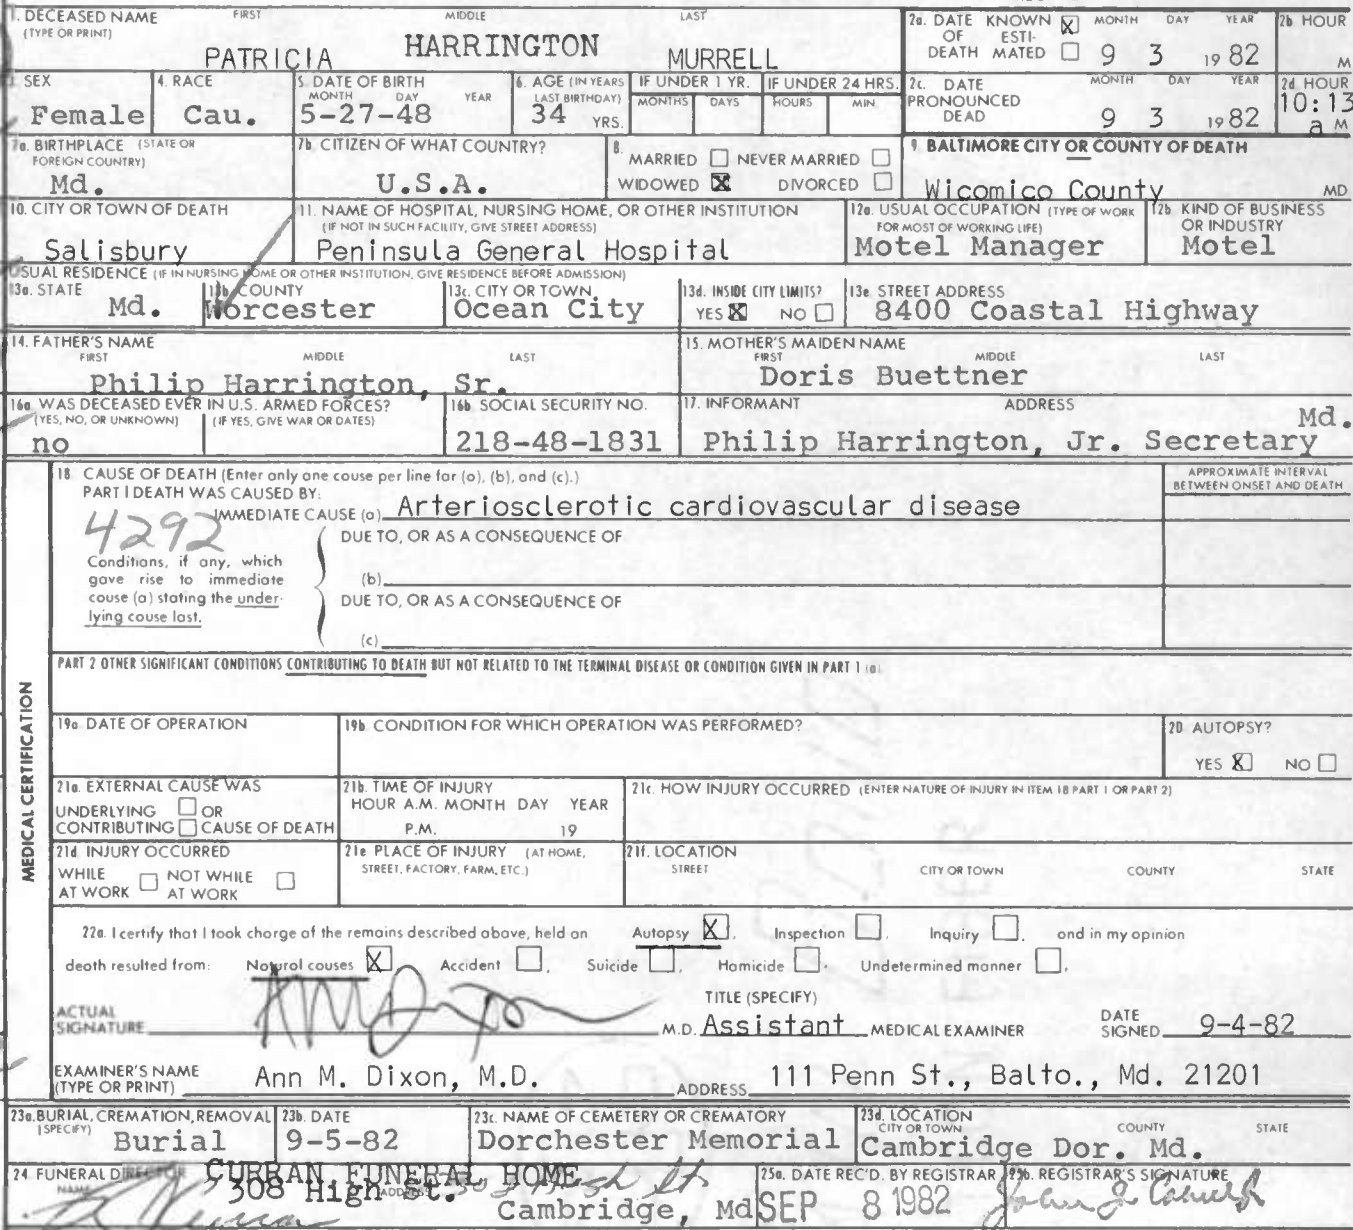 1. DECEASED NAME FIRST MIDDLE LAST
(TYPE OR PRINT)
PATRICIA HARRINGTON MURRELL
2a. DATE KNOWN X MONTH DAY YEAR
OF ESTI-
DEATH MATED 9 3 19 82
2b HOUR
M
3. SEX
Female
4. RACE
Cau.
5. DATE OF BIRTH
MONTH DAY YEAR
5-27-48
6. AGE (IN YEARS
LAST BIRTHDAY)
34 YRS.
IF UNDER 1 YR. IF UNDER 24 HRS.
MONTHS DAYS HOURS MIN.
2c. DATE MONTH DAY YEAR
PRONOUNCED
DEAD 9 3 19 82
2d HOUR
10:13
a M
7a. BIRTHPLACE (STATE OR
FOREIGN COUNTRY)
Md.
7b. CITIZEN OF WHAT COUNTRY?
U.S.A.
8.
MARRIED NEVER MARRIED
WIDOWED X DIVORCED
9. BALTIMORE CITY OR COUNTY OF DEATH
Wicomico County MD
10. CITY OR TOWN OF DEATH
Salisbury
11. NAME OF HOSPITAL, NURSING HOME, OR OTHER INSTITUTION
(IF NOT IN SUCH FACILITY, GIVE STREET ADDRESS)
Peninsula General Hospital
12a. USUAL OCCUPATION (TYPE OF WORK
FOR MOST OF WORKING LIFE)
Motel Manager
12b KIND OF BUSINESS
OR INDUSTRY
Motel
USUAL RESIDENCE (IF IN NURSING HOME OR OTHER INSTITUTION, GIVE RESIDENCE BEFORE ADMISSION)
13a. STATE
Md.
13b. COUNTY
Worcester
13c. CITY OR TOWN
Ocean City
13d. INSIDE CITY LIMITS?
YES X NO
13e STREET ADDRESS
8400 Coastal Highway
14. FATHER'S NAME
FIRST MIDDLE LAST
Philip Harrington, Sr.
15. MOTHER'S MAIDEN NAME
FIRST MIDDLE LAST
Doris Buettner
16a WAS DECEASED EVER IN U.S. ARMED FORCES?
(YES, NO, OR UNKNOWN) (IF YES, GIVE WAR OR DATES)
no
16b SOCIAL SECURITY NO.
218-48-1831
17. INFORMANT ADDRESS
Md.
Philip Harrington, Jr. Secretary
MEDICAL CERTIFICATION
18. CAUSE OF DEATH (Enter only one cause per line for (a), (b), and (c).)
PART I DEATH WAS CAUSED BY:
IMMEDIATE CAUSE (a) Arteriosclerotic cardiovascular disease
APPROXIMATE INTERVAL
BETWEEN ONSET AND DEATH
4292
DUE TO, OR AS A CONSEQUENCE OF
Conditions, if any, which
gave rise to immediate
cause (a) stating the under-
lying cause last.
(b)
DUE TO, OR AS A CONSEQUENCE OF
(c)
PART 2 OTHER SIGNIFICANT CONDITIONS CONTRIBUTING TO DEATH BUT NOT RELATED TO THE TERMINAL DISEASE OR CONDITION GIVEN IN PART 1 (a)
19a DATE OF OPERATION
19b CONDITION FOR WHICH OPERATION WAS PERFORMED?
20 AUTOPSY?
YES X NO
21a. EXTERNAL CAUSE WAS
UNDERLYING OR
CONTRIBUTING CAUSE OF DEATH
21b. TIME OF INJURY
HOUR A.M. MONTH DAY YEAR
P.M. 19
21c. HOW INJURY OCCURRED (ENTER NATURE OF INJURY IN ITEM 18 PART 1 OR PART 2)
21d INJURY OCCURRED
WHILE NOT WHILE
AT WORK AT WORK
21e PLACE OF INJURY (AT HOME,
STREET, FACTORY, FARM, ETC.)
21f. LOCATION
STREET CITY OR TOWN COUNTY STATE
22a. I certify that I took charge of the remains described above, held an Autopsy X, Inspection , Inquiry , and in my opinion
death resulted from: Natural causes X Accident , Suicide , Homicide . Undetermined manner .
ACTUAL
SIGNATURE
TITLE (SPECIFY)
M.D. Assistant MEDICAL EXAMINER
DATE
SIGNED 9-4-82
EXAMINER'S NAME
(TYPE OR PRINT) Ann M. Dixon, M.D.
ADDRESS 111 Penn St., Balto., Md. 21201
23a. BURIAL, CREMATION, REMOVAL
(SPECIFY)
Burial
23b. DATE
9-5-82
23c. NAME OF CEMETERY OR CREMATORY
Dorchester Memorial
23d. LOCATION
CITY OR TOWN COUNTY STATE
Cambridge Dor. Md.
24 FUNERAL DIRECTOR
NAME ADDRESS
CURRAN FUNERAL HOME
308 High St.
Cambridge, Md
25a. DATE REC'D. BY REGISTRAR
SEP 8 1982
25b. REGISTRAR'S SIGNATURE